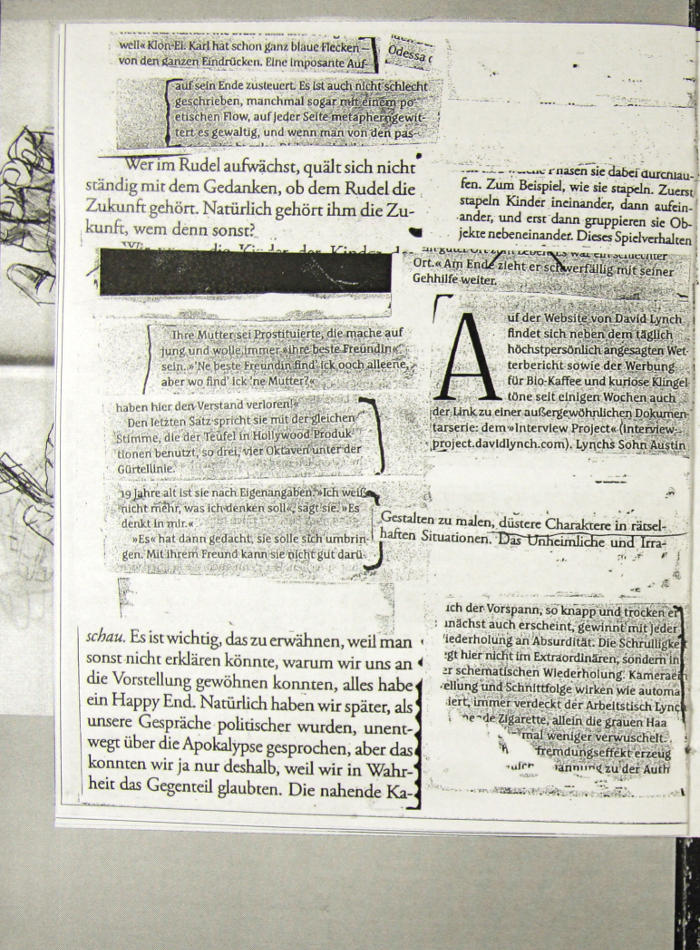 well« Klon-El. Karl hat schon ganz blaue Flecken
von den ganzen Eindrücken. Eine imposante Auf-
Odessa
auf sein Ende zusteuert. Es ist auch nicht schlecht
geschrieben, manchmal sogar mit einem po-
etischen Flow, auf jeder Seite metapherngewit-
tert es gewaltig, und wenn man von den pas-
Wer im Rudel aufwächst, quält sich nicht
ständig mit dem Gedanken, ob dem Rudel die
Zukunft gehört. Natürlich gehört ihm die Zu-
kunft, wem denn sonst?
die Kinder der Kinder
Ihre Mutter sei Prostituierte, die mache auf
jung und wolle immer »ihre beste Freundin«
sein. »'Ne beste Freundin find' ick ooch alleene,
aber wo find' ick 'ne Mutter?«
haben hier den Verstand verloren!«
Den letzten Satz spricht sie mit der gleichen
Stimme, die der Teufel in Hollywood Produk-
tionen benutzt, so drei, vier Oktaven unter der
Gürtellinie.
19 Jahre alt ist sie nach Eigenangaben. »Ich weiß
nicht mehr, was ich denken soll«, sagt sie. »Es
denkt in mir.«
»Es« hat dann gedacht, sie solle sich umbrin-
gen. Mit ihrem Freund kann sie nicht gut darü-
schau. Es ist wichtig, das zu erwähnen, weil man
sonst nicht erklären könnte, warum wir uns an
die Vorstellung gewöhnen konnten, alles habe
ein Happy End. Natürlich haben wir später, als
unsere Gespräche politischer wurden, unent-
wegt über die Apokalypse gesprochen, aber das
konnten wir ja nur deshalb, weil wir in Wahr-
heit das Gegenteil glaubten. Die nahende Ka-
Phasen sie dabei durchlau-
fen. Zum Beispiel, wie sie stapeln. Zuerst
stapeln Kinder ineinander, dann aufein-
ander, und erst dann gruppieren sie Ob-
jekte nebeneinander. Dieses Spielverhalten
ein schlechter
Ort.« Am Ende zieht er schwerfällig mit seiner
Gehhilfe weiter.
Auf der Website von David Lynch
findet sich neben dem täglich
höchstpersönlich angesagten Wet
terbericht sowie der Werbung
für Bio-Kaffee und kuriose Klingel
töne seit einigen Wochen auch
der Link zu einer außergewöhnlichen Dokumen
tarserie: dem »Interview Project« (interview-
project.davidlynch.com). Lynchs Sohn Austin
Gestalten zu malen, düstere Charaktere in rätsel-
haften Situationen. Das Unheimliche und Irra-
ich der Vorspann, so knapp und trocken er
unächst auch erscheint, gewinnt mit jeder
iederholung an Absurdität. Die Schrulligke
egt hier nicht im Extraordinären, sondern in
er schematischen Wiederholung: Kameraein
ellung und Schnittfolge wirken wie automa
iert, immer verdeckt der Arbeitstisch Lynch
ende Zigarette, allein die grauen Haa
mal weniger verwuschelt.
fremdungseffekt erzeug
annung zu der Auth